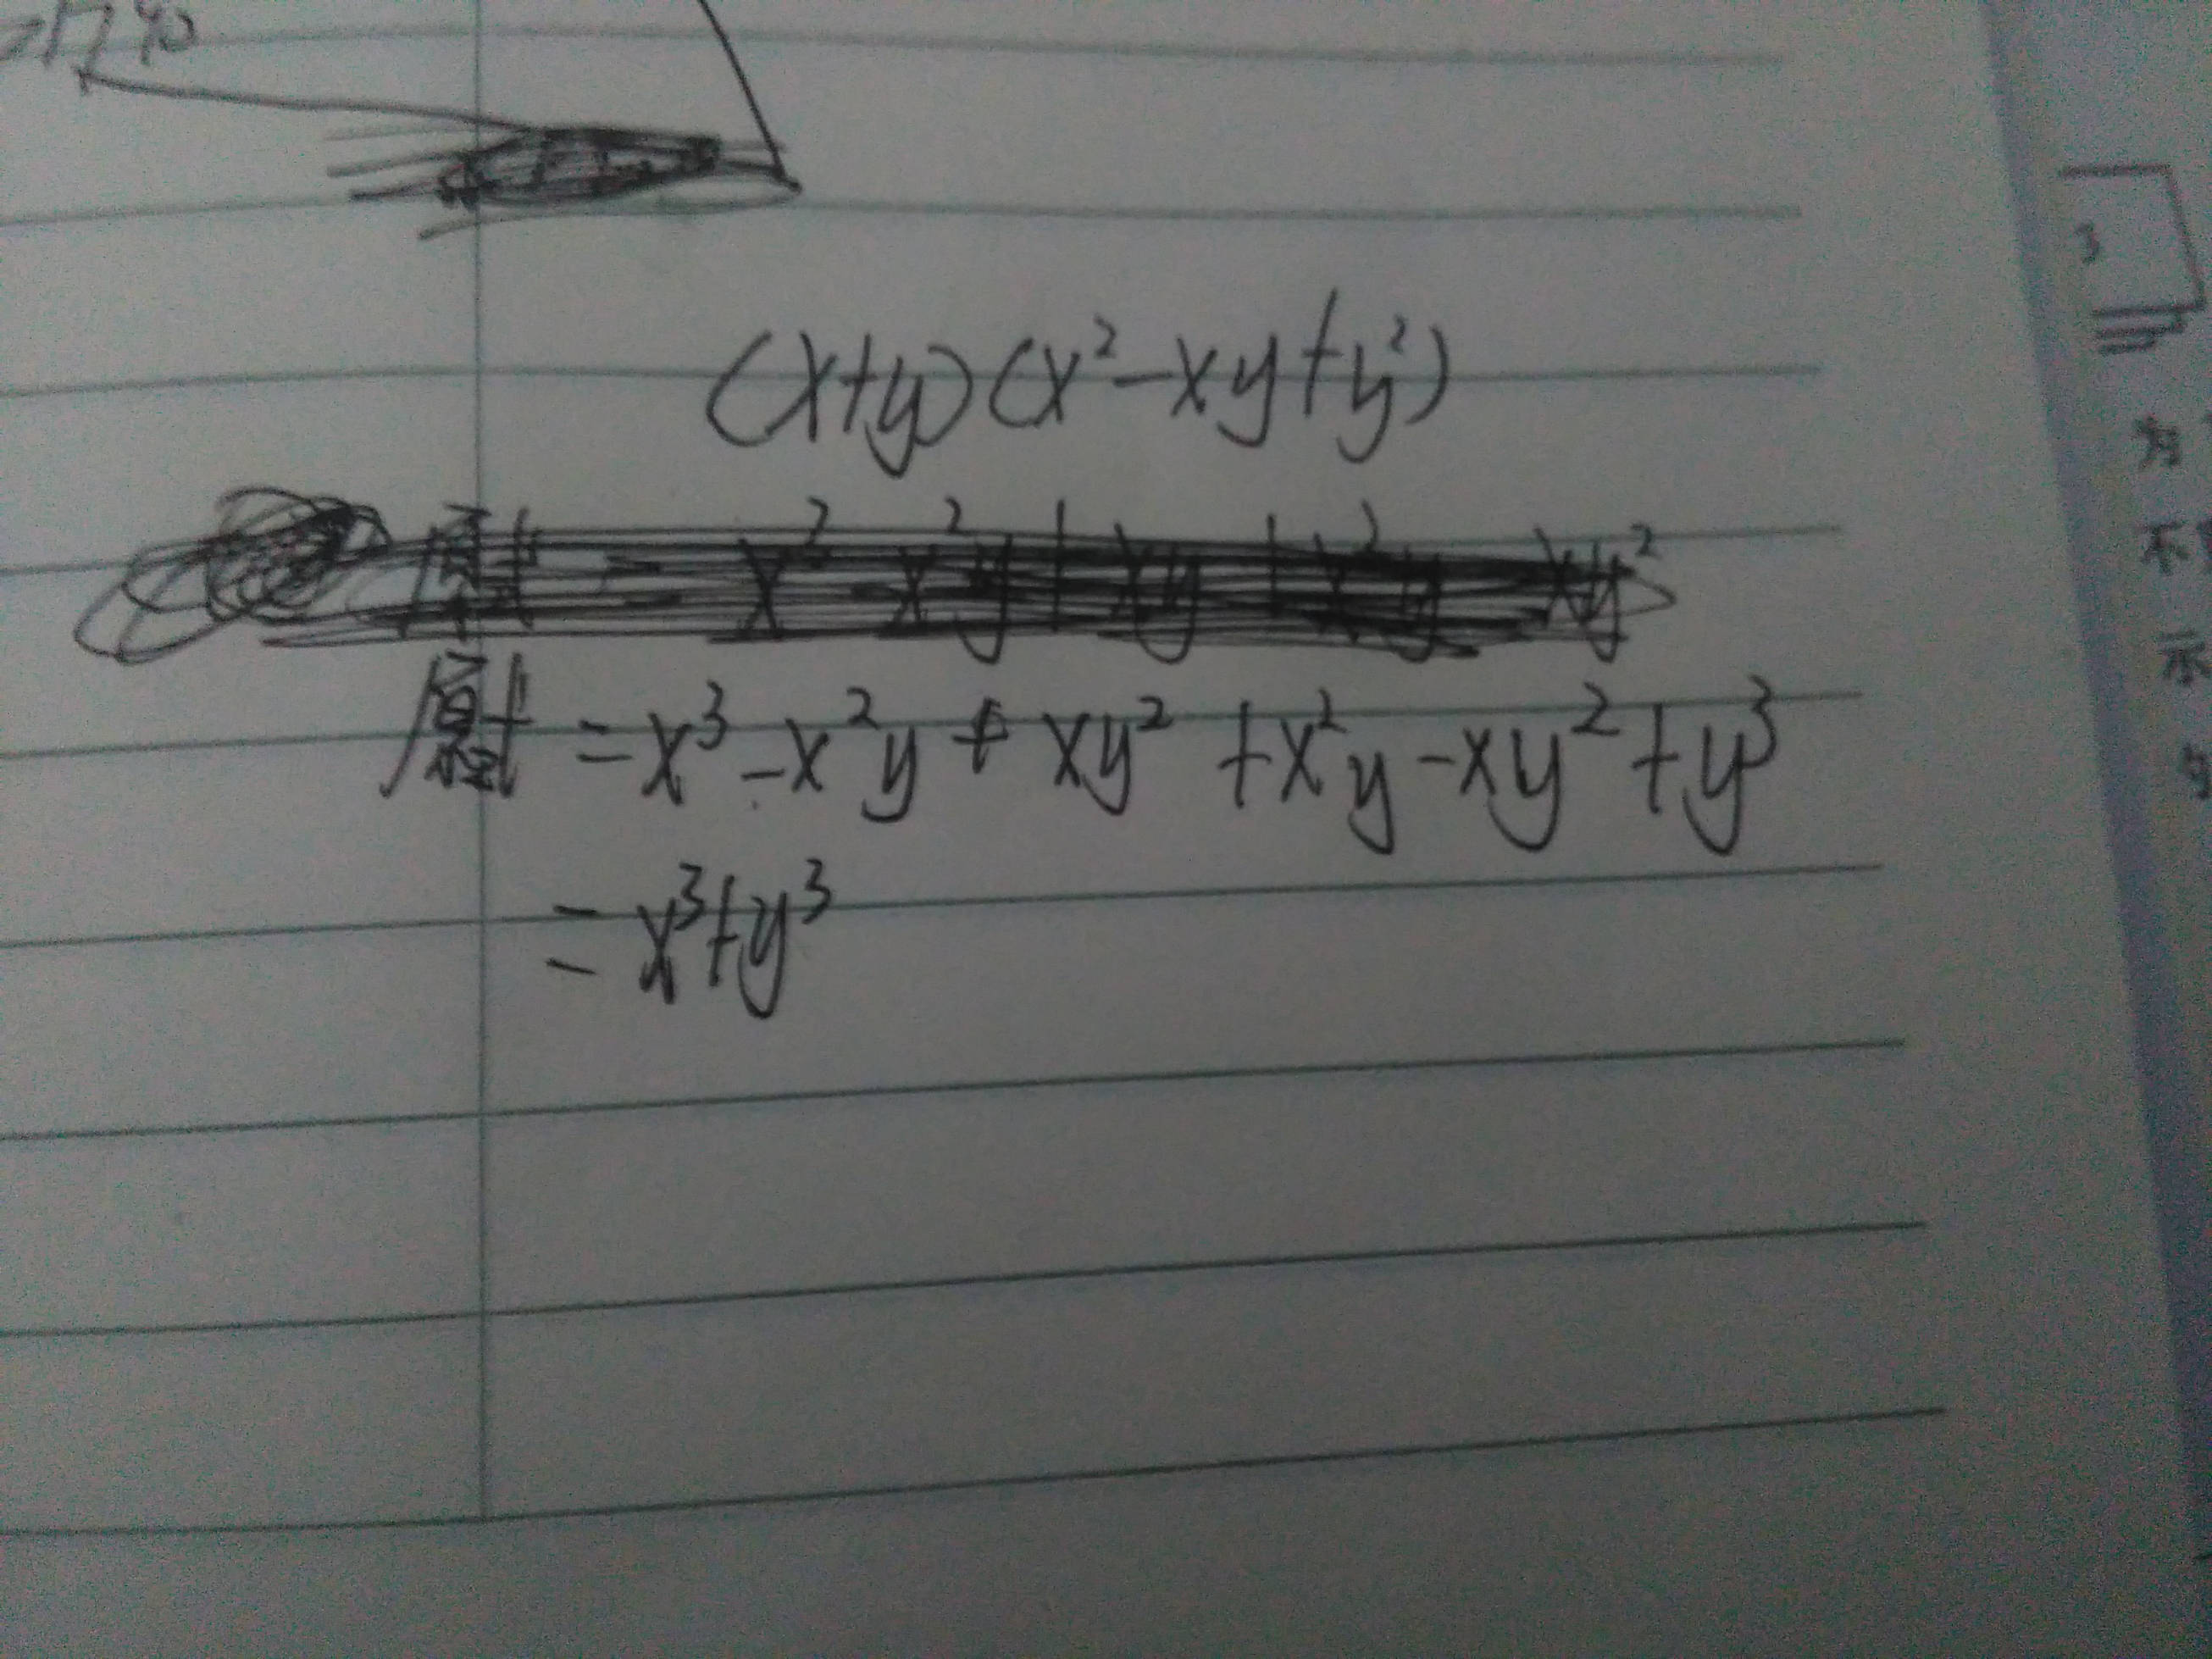 (x+y)(x²-xy+y²)
原式=x³-x²y+xy²+x²y-xy²+y³
=x³+y³
3
为
不
示